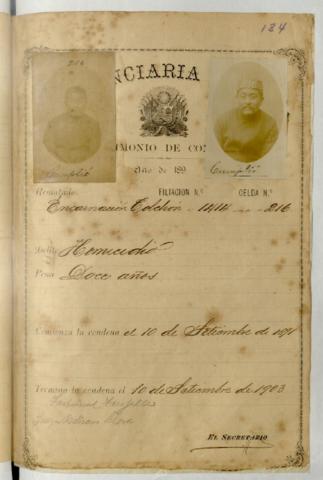 184
216
NCIARIA
IMONIO DE CO
Año de 189
Cumplió
Cumplió
Rematado FILIACION N.º CELDA N.º
Encarnación 1414 216
Delito Homicidio
Pena Doce años
Comienza la condena el 10 de Setiembre de 1891
Termina la condena el 10 de Setiembre de 1903
EL SECRETARIO